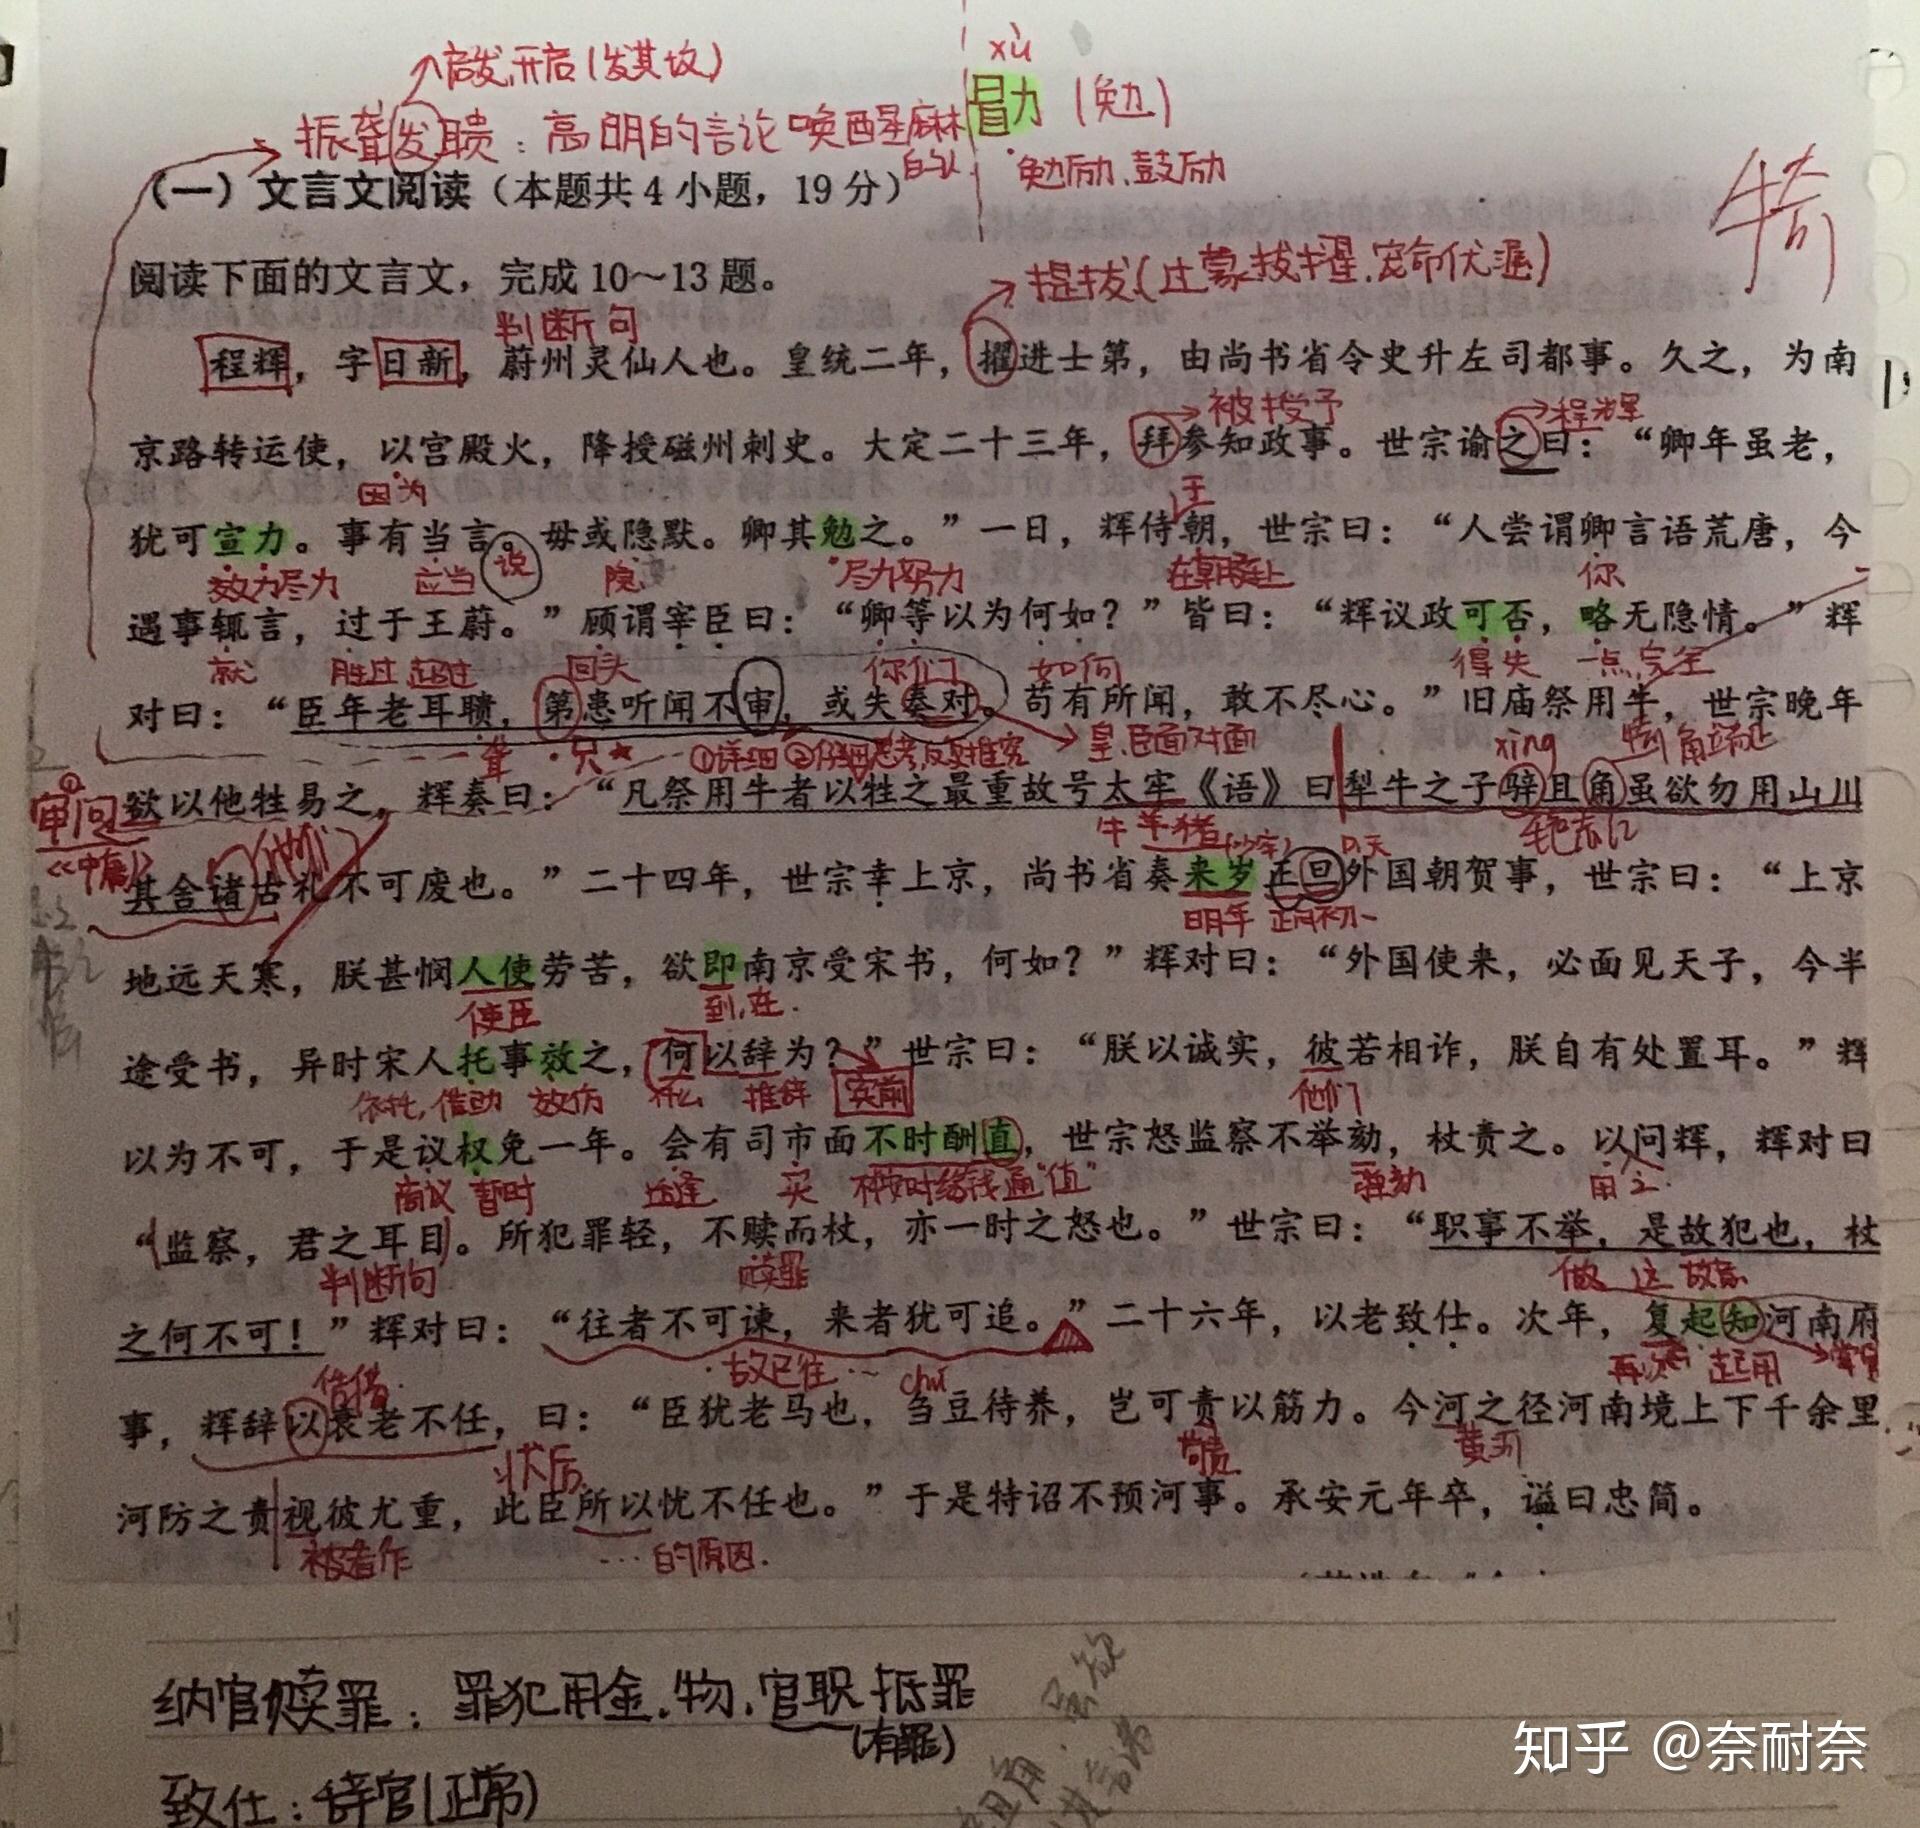 启发,开启(发其故)
xù
勖力（勉）
振聋发聩：高明的言论唤醒麻木的人
勉励、鼓励
（一）文言文阅读（本题共4小题，19分）
犄
阅读下面的文言文，完成10～13题。
提拔(过蒙拔擢,宠命优渥)
判断句
程辉，字日新，蔚州灵仙人也。皇统二年，擢进士第，由尚书省令史升左司都事。久之，为南
被授予 程辉
京路转运使，以宫殿火，降授磁州刺史。大定二十三年，拜参知政事。世宗谕之曰：“卿年虽老，
因为
犹可宣力。事有当言。毋或隐默。卿其勉之。”一日，辉侍朝，世宗曰：“人尝谓卿言语荒唐，今
效力尽力 应当 说 隐 尽力努力 在朝廷上 你
遇事辄言，过于王蔚。”顾谓宰臣曰：“卿等以为何如？”皆曰：“辉议政可否，略无隐情。”辉
就 胜过 超过 回头 你们 如何 得失 一点,完全
对曰：“臣年老耳聩，第患听闻不审，或失奏对。苟有所闻，敢不尽心。”旧庙祭用牛，世宗晚年
聋 只 ①详细②仔细思考,反复推究 皇、臣面对面 xing 牛角端正
审问
《中庸》
欲以他牲易之，辉奏曰：“凡祭用牛者以牲之最重故号太牢《语》曰犁牛之子骍且角虽欲勿用山川
牛羊猪(少牢) 毛色赤红
其舍诸古礼不可废也。”二十四年，世宗幸上京，尚书省奏来岁正旦外国朝贺事，世宗曰：“上京
明年 正月初一
地远天寒，朕甚悯人使劳苦，欲即南京受宋书，何如？”辉对曰：“外国使来，必面见天子，今半
使臣 到,在.
途受书，异时宋人托事效之，何以辞为？”世宗曰：“朕以诚实，彼若相诈，朕自有处置耳。”辉
依托,借助 效仿 什么 推辞 宾前 他们
以为不可，于是议权免一年。会有司市面不时酬直，世宗怒监察不举劾，杖责之。以问辉，辉对曰
商议 暂时 适逢 买 不按时给钱 通“值” 弹劾
“监察，君之耳目。所犯罪轻，不赎而杖，亦一时之怒也。”世宗曰：“职事不举，是故犯也，杖
判断句 赎罪 做 这 故意
之何不可！”辉对曰：“往者不可谏，来者犹可追。”二十六年，以老致仕。次年，复起知河南府
故已往… chú 再次 起用 掌管
事，辉辞以衰老不任，曰：“臣犹老马也，刍豆待养，岂可责以筋力。今河之径河南境上下千余里
状后 苛责 黄河
河防之责视彼尤重，此臣所以忧不任也。”于是特诏不预河事。承安元年卒，谥曰忠简。
被看作 …的原因.
纳官赎罪：罪犯用金.物.官职抵罪
(有罪)
致仕：辞官(正常)
知乎 @奈耐奈